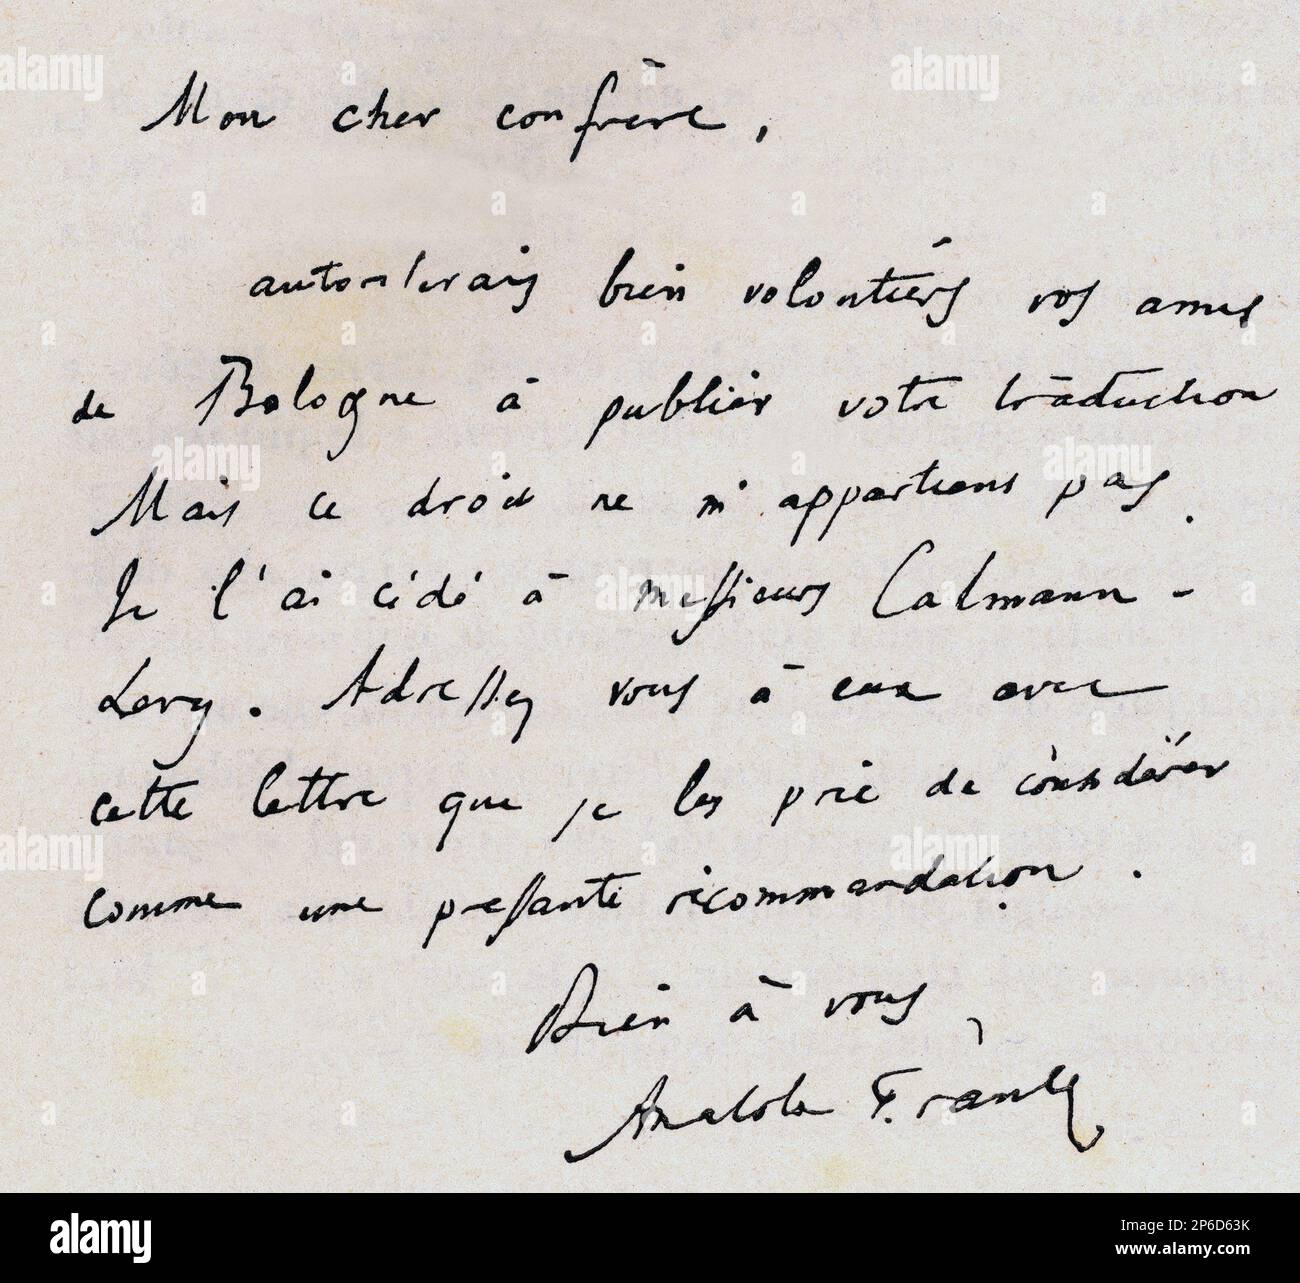 Mon cher confrère,
autoriserais bien volontiers vos amis
de Bologne à publier votre traduction
Mais ce droit ne m'appartiens pas.
Je l'ai cédé à messieurs Calmann-
Levy. Adressez vous à eux avec
cette lettre que je les prie de considérer
comme une pressante recommandation.
Bien à vous
Anatole France
alamy
Image ID: 2P6D63K
www.alamy.com